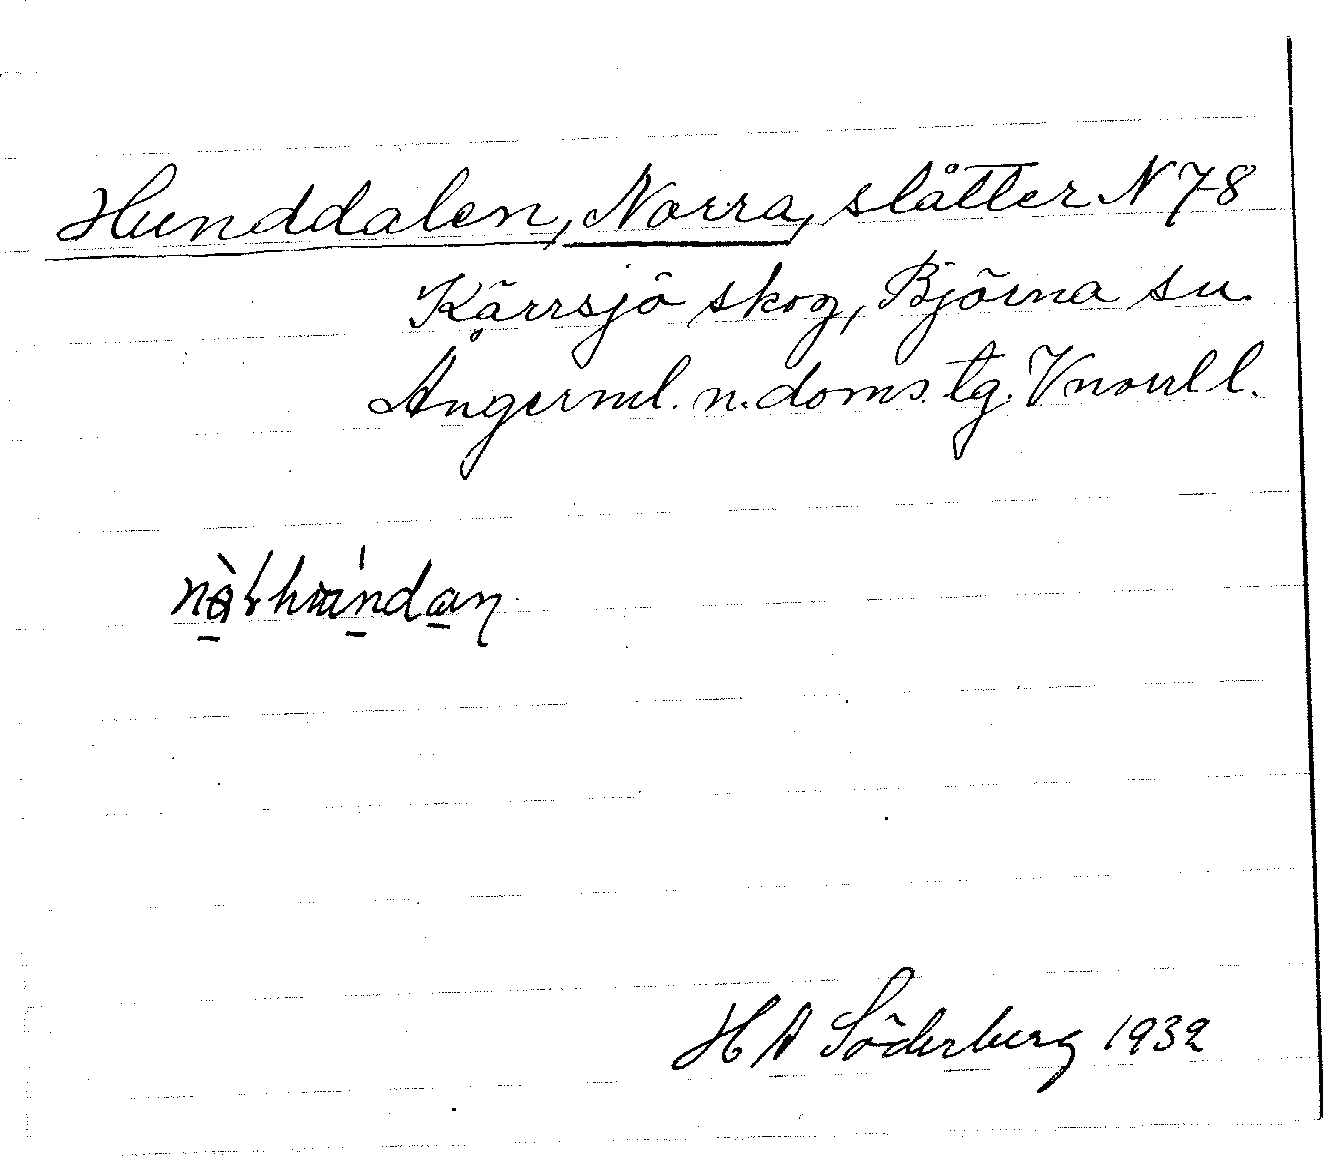 Hunddalen, Norra, slåtter N 78
Kärrsjö skog, Björna sn.
Ångerml. n. doms. tg. Vnorrl l.
H A Söderberg 1932